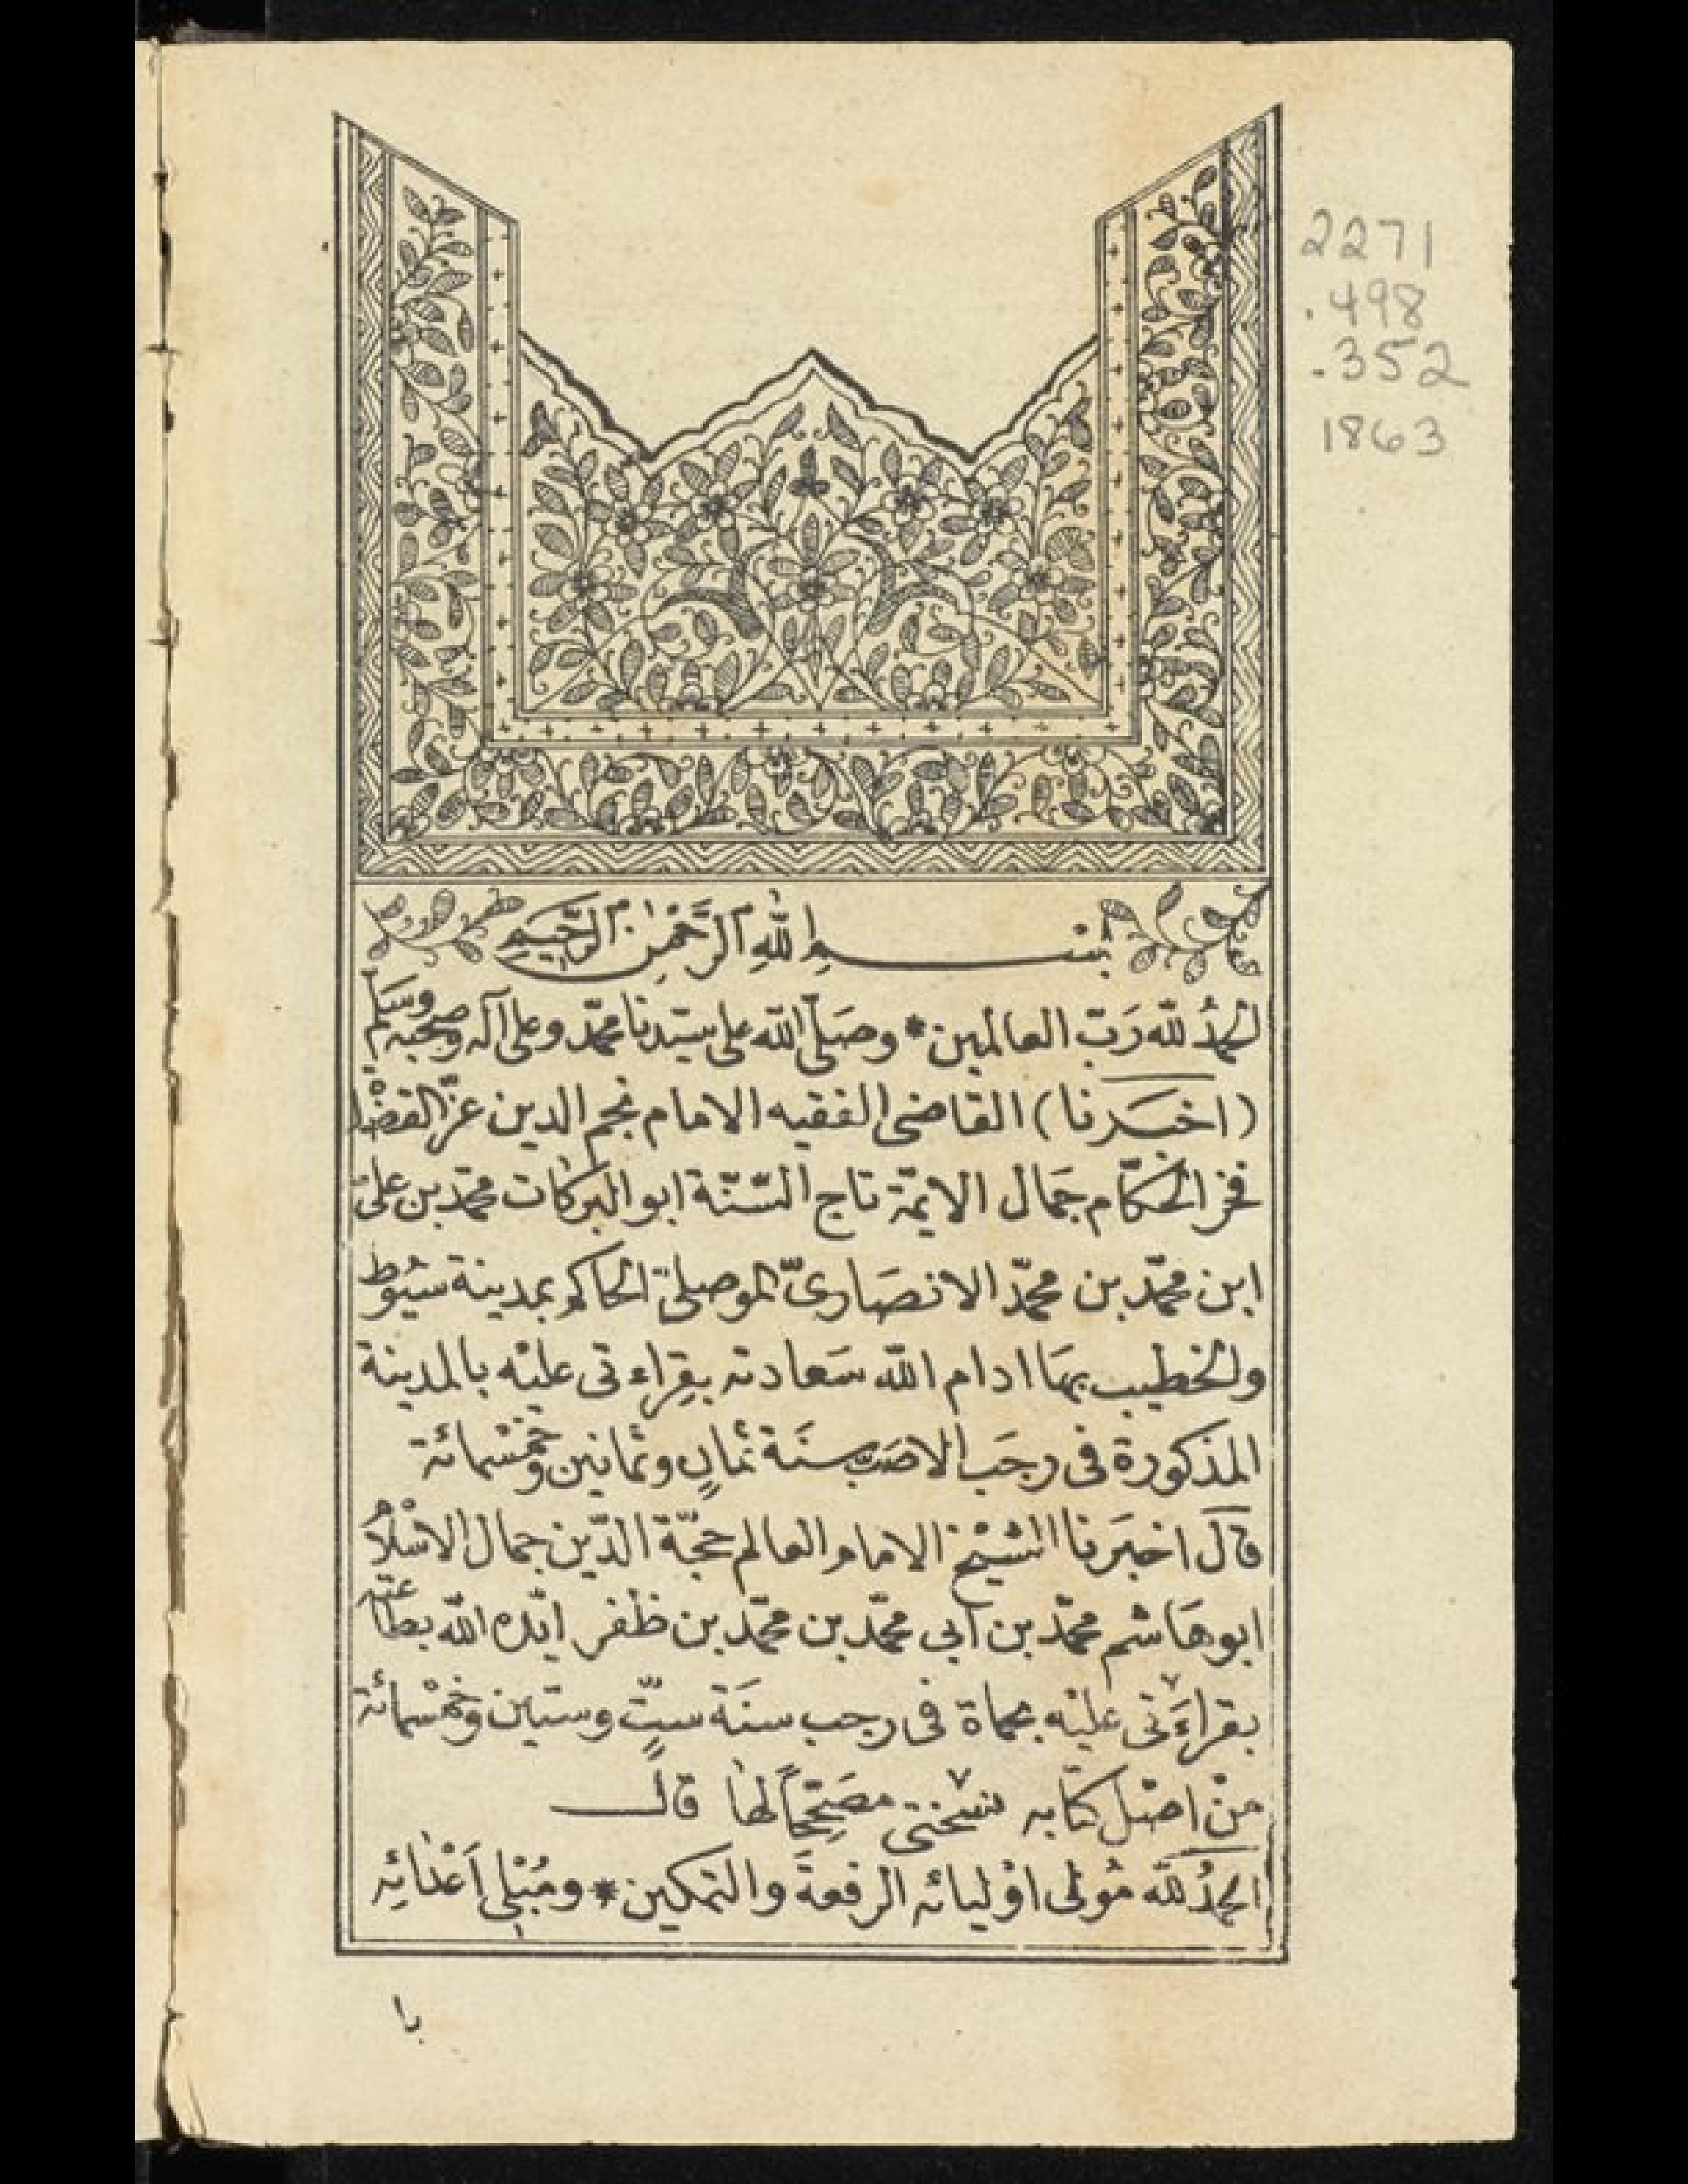 2271
.498
.352
1863
بِسْــــــمِ اللّٰهِ الرَّحْمٰنِ الرَّحِيمِ
الحمدُ للّه رَبّ العالمين * وصَلّى اللّه على سيّدنا محمّد وعلى آله وصحبه وسَلم
(اخبَرنا) القاضى الفقيه الامام نجم الدين عزّ القضاة
فخر الحكّام جمَال الايمّة تاج السّنّة ابو البركات محمّد بن علىّ
ابن محمّد بن محمّد الانصَارىّ الموصلىّ الحاكم بمدينة سيُوط
والخطيب بهَا ادام اللّه سَعادته بقِراءتى عليْه بالمدينة
المذكورة فى رجَب الاصَبّ سنَة ثمانٍ وثمانين وخمْسمائة
قالَ اخبَرنا الشيْخ الامام العالم حجّة الدّين جمال الاسْلام
ابو هَاشم محمّد بن ابى محمّد بن محمّد بن ظفر ايّده اللّه بطاعته
بقراءَتى عليْه بحماة فى رجب سنَة ستٍّ وستين وخمْسمائة
منْ اصْل كتابه نسْختى مصَحِّحاً لهَا قالــــ
الحمدُ للّه مُولى اوْليائه الرفعةَ والتمكين * ومُبْلى اَعْدائِه
با